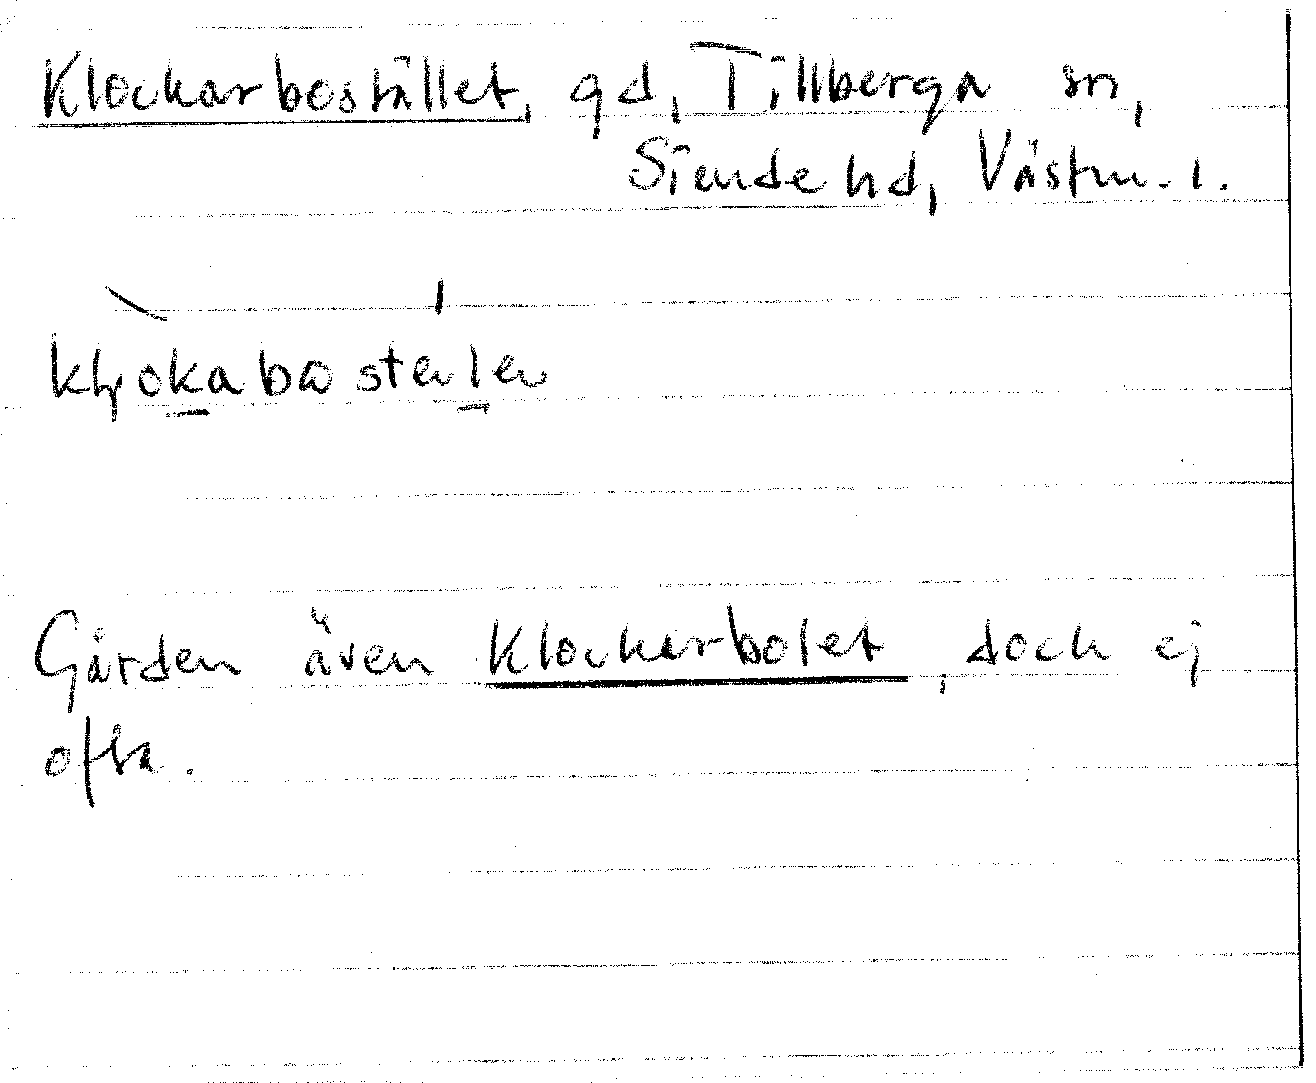 Klockarbostället, gd, Tillberga sn,
Siende hd, Västm. l.
Gården även Klockarbolet, doch ej
ofta.